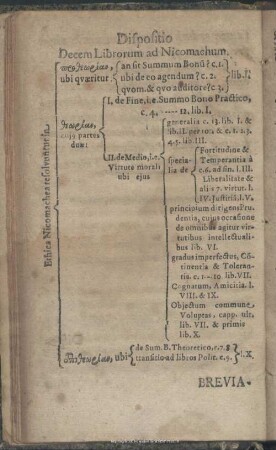 Dispositio
Decem Librorum ad Nicomachum.
an sit Summum Bonũ? c. 1.
ubi quæritur ubi de eo agendum? c. 2. lib. I.
qvom. & qvo auditore? c. 3.
I. de Fine, i. e. Summo Bono Practico,
c. 4. — 12. lib. I.
generalia c. 13. lib. I. &
lib. II. per tot. & c. 1. 2. 3.
4. 5. lib. III.
partes
duæ:
Fortitudine &
Temperantia à
c. 6. ad fin. l. III.
Liberalitate &
alii 7. virtut. l.
IV. Justitiâ l. V.
specia-
lia de
II. de Medio, i. e.
Virtute morali
ubi ejus
principium dirigens Pru-
dentia, cujus occasione
de omnibus agitur vir-
tutibus intellectuali-
bus lib. VI.
gradus imperfectus, Cõ-
tinentia & Toleran-
tia. c. 1—10 lib. VII.
Cognatum, Amicitia. l.
VIII. & IX.
Objectum commune,
Voluptas. capp. ult.
lib. VII. & primis
lib. X.
Ethica Nicomachea resolvuntur in
ubi de Sum. B. Theoretico, c. 7. 8
transitio ad libros Polit. c. 9. l. X.
BREVIA-